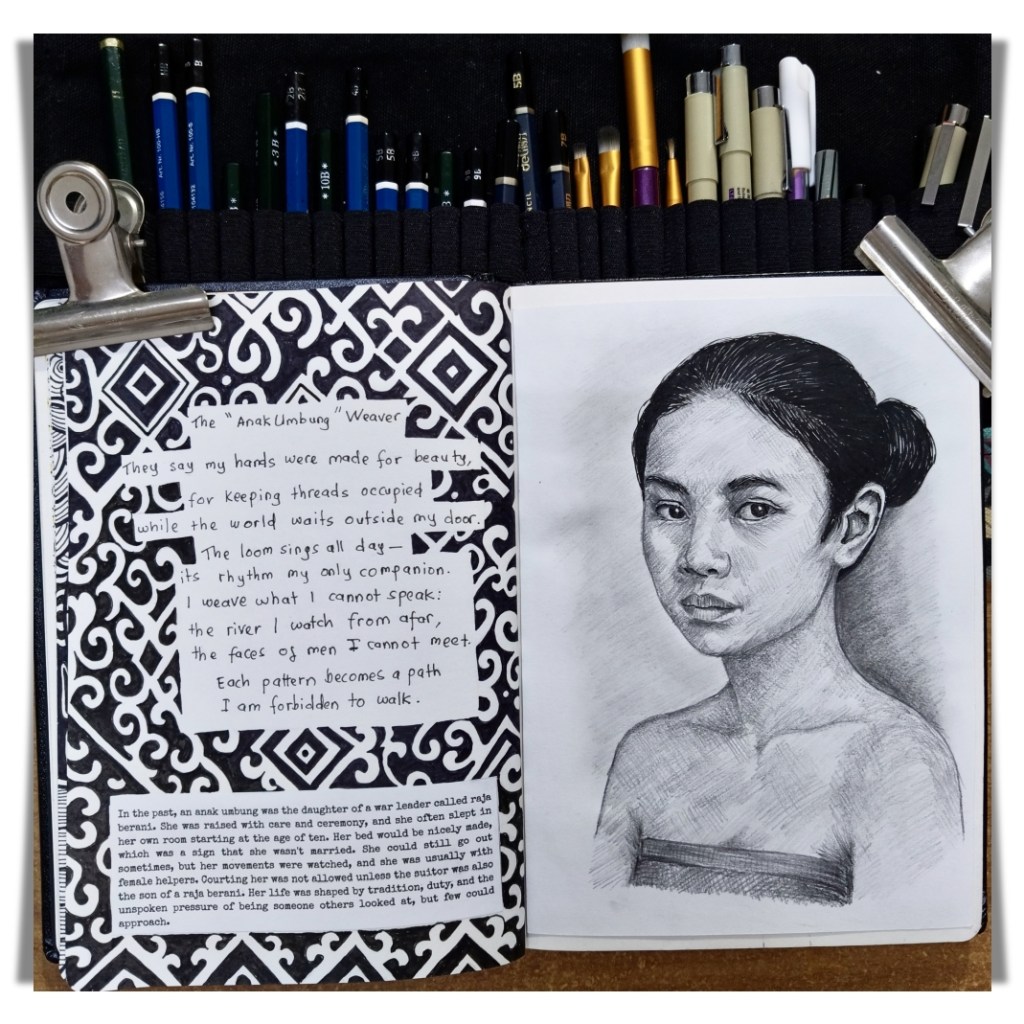 5B
2B
3B
10B
5B
5B
9B
Art. Nr. 100-HB
Art. Nr. 100-6
The "Anak Umbung" Weaver
They say my hands were made for beauty,
for keeping threads occupied
while the world waits outside my door.
The loom sings all day—
its rhythm my only companion.
I weave what I cannot speak:
the river I watch from afar,
the faces of men I cannot meet.
Each pattern becomes a path
I am forbidden to walk.
In the past, an anak umbung was the daughter of a war leader called raja
berani. She was raised with care and ceremony, and she often slept in
her own room starting at the age of ten. Her bed would be nicely made,
which was a sign that she wasn't married. She could still go out
sometimes, but her movements were watched, and she was usually with
female helpers. Courting her was not allowed unless the suitor was also
the son of a raja berani. Her life was shaped by tradition, duty, and the
unspoken pressure of being someone others looked at, but few could
approach.